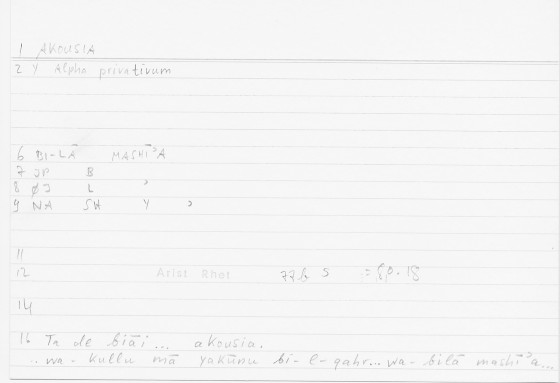 1 AKOUSIA
2 Y Alpha privativum
6 BI-LĀ MASHĪʾA
7 JP B
8 ØJ L ʾ
9 NA SH Y ʾ
11
12 Arist Rhet 77b 5 = 80.18
14
16 Ta de biāi... akousia.
.. wa- kullu mā yakūnu bi-l-qahr... wa-bilā mashīʾa...